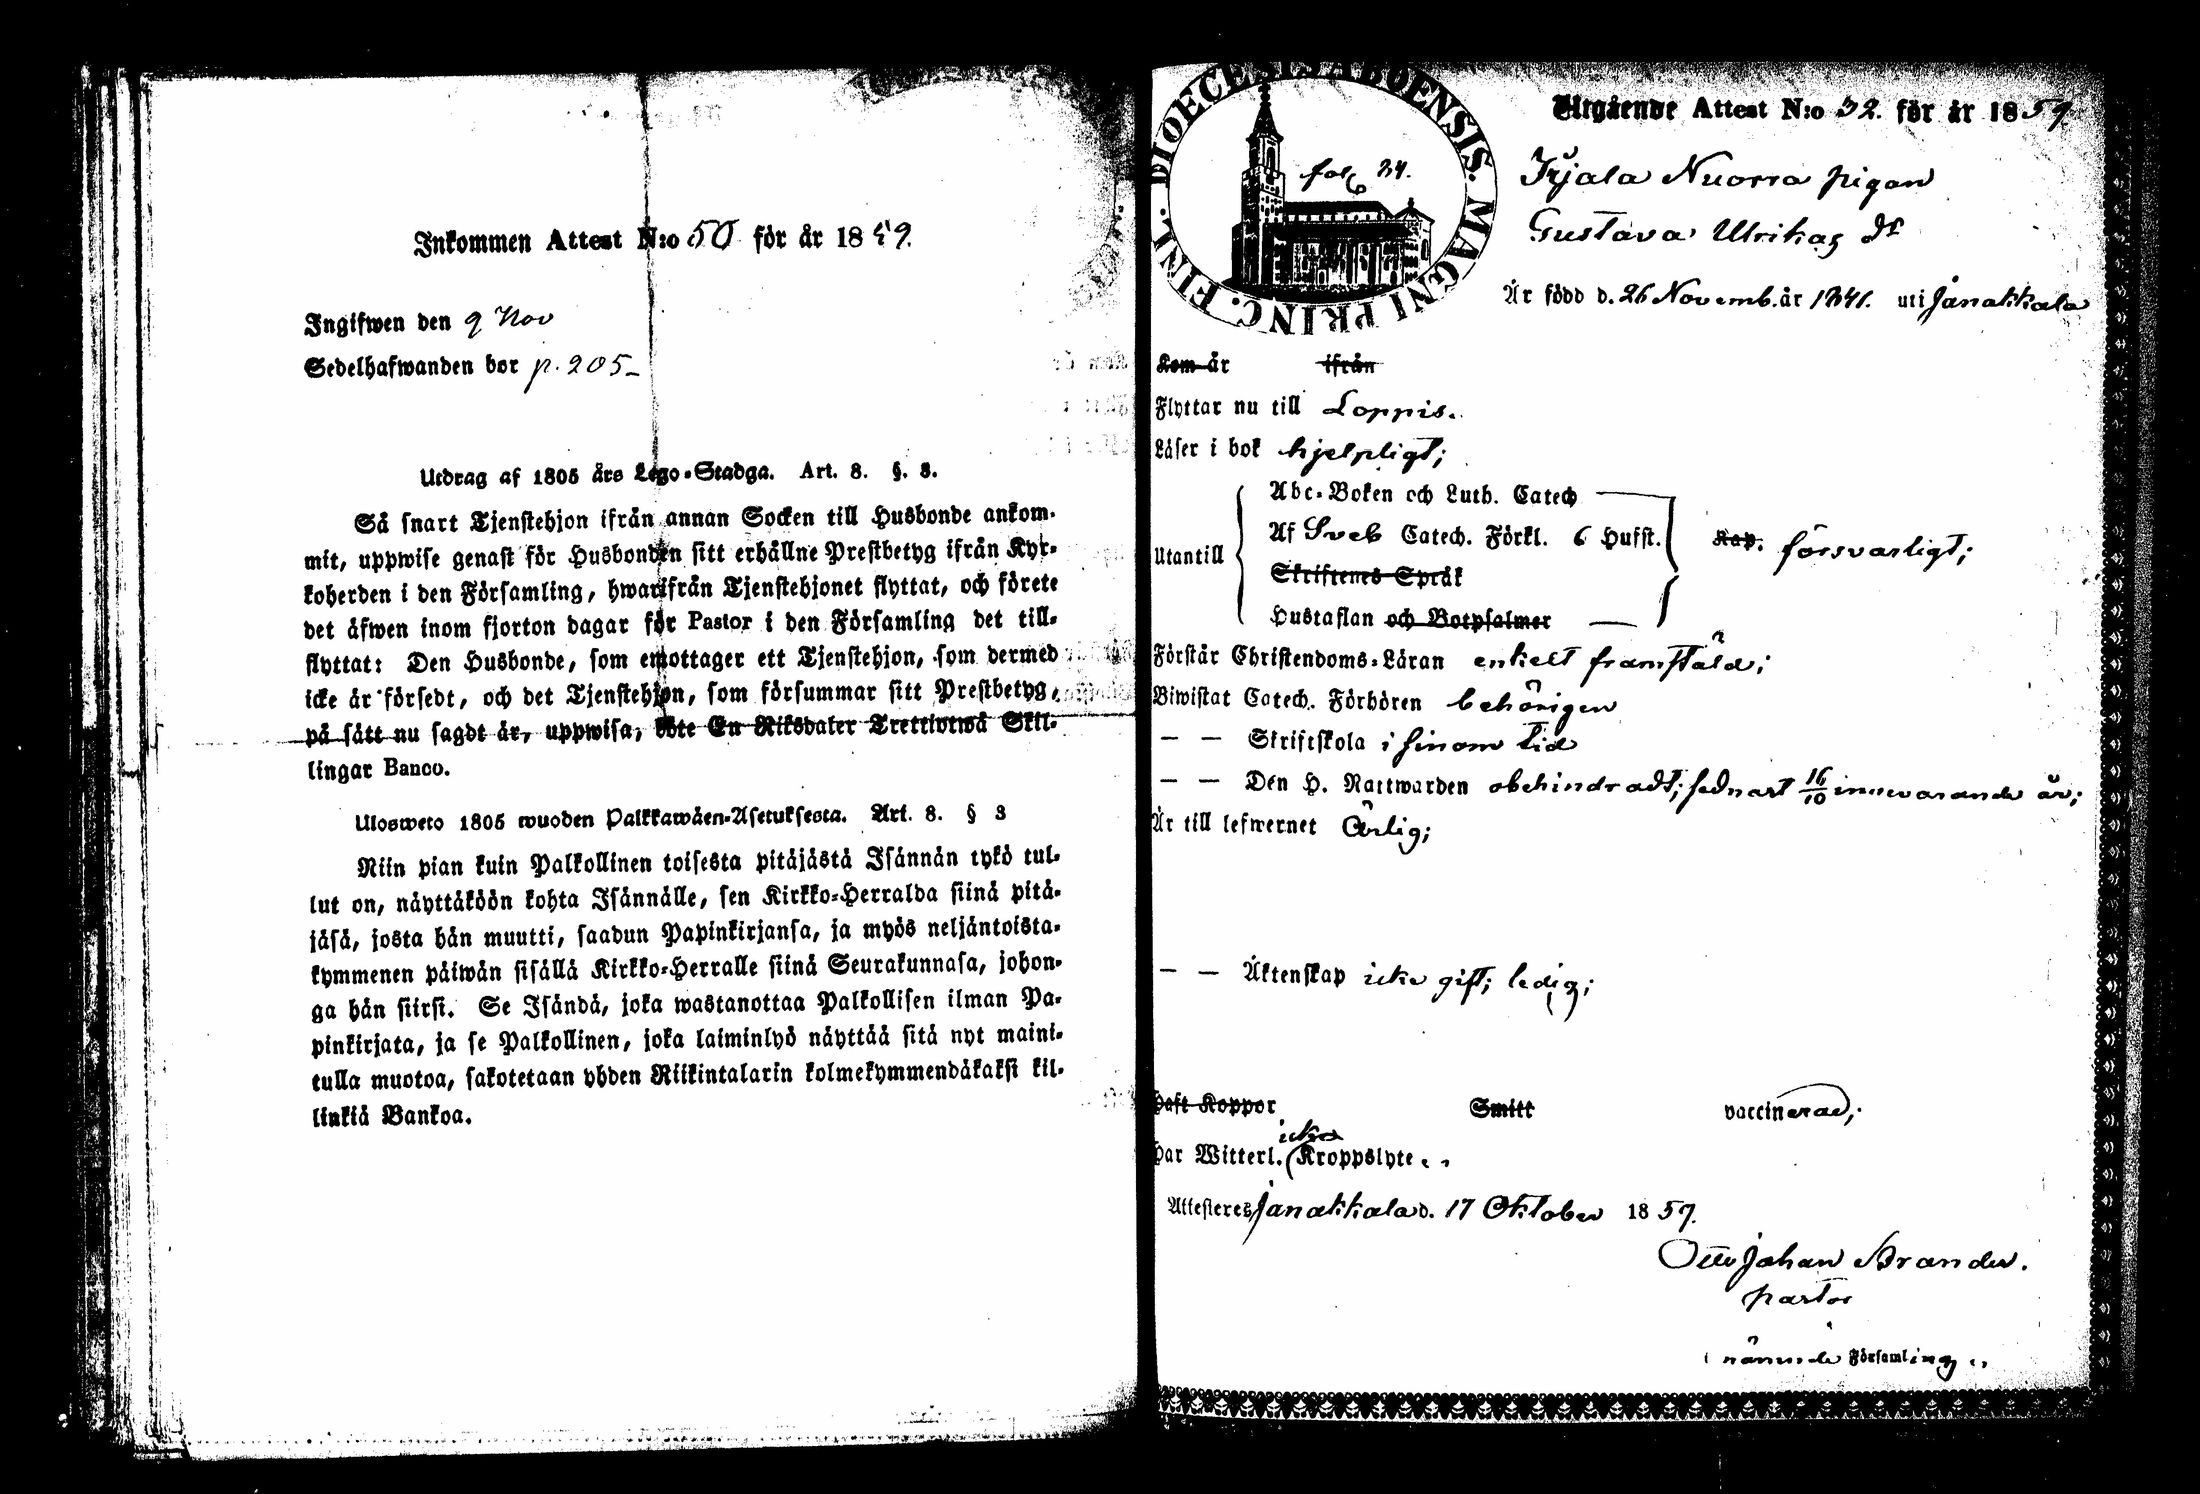 Inkommen Attest N:o 50 för år 1859.
Ingifwen den 9 Nov
Sedelhafwanden bor p. 205-
Utdrag af 1805 års Lego-Stadga. Art. 8. §. 3.
Så snart Tjenstehjon ifrån annan Socken till Husbonde ankom-
mit, uppwise genast för Husbonden sitt erhållne Prestbetyg ifrån Kyr-
koherden i den Församling, hwarifrån Tjenstehjonet flyttat, och förete
det äfwen inom fjorton dagar för Pastor i den Församling det till-
flyttat: Den Husbonde, som emottager ett Tjenstehjon, som dermed
icke är försedt, och det Tjenstehjon, som försummar sitt Prestbetyg,
på sätt nu sagdt är, uppwisa, böte En Riksdaler Trettiotwå Skil-
lingar Banco.
Ulosweto 1805 wuoden Palkkawäen-Asetuksesta. Art. 8. § 3
Niin pian kuin Palkollinen toisesta pitäjästä Isännän tykö tul-
lut on, näyttäköön kohta Isännälle, sen Kirkko-Herralda siinä pitä-
jäsä, josta hän muutti, saadun Papinkirjansa, ja myös neljäntoista-
kymmenen päiwän sisällä Kirkko-Herralle siinä Seurakunnasa, johon-
ga hän siirsi. Se Isändä, joka wastanottaa Palkollisen ilman Pa-
pinkirjata, ja se Palkollinen, joka laiminlyö näyttää sitä nyt maini-
tulla muotoa, sakotetaan yhden Riikintalarin kolmekymmendäkaksi kil-
linkiä Bankoa.
DIOECESIS ABOENSIS. MAGNI PRINC. FINL.
fol 34.
Utgående Attest N:o 32. för år 1859.
Irjala Nuorra pigan
Gustava Ulrika dr
Är född d. 26 Novemb. år 1841. uti Janakkala
Kom år ifrån
Flyttar nu till Loppis.
Läser i bok hjelpligt;
Utantill
Abc-Boken och Luth. Catech
Af Sveb Catech. Förkl. 6 Hufst.
Skriftenes Språk
Hustaflan och Botpsalmer
Kap. försvarligt;
Förstår Christendoms-Läran enkelt framstäld;
Biwistat Catech. Förhören behörigen
— — Skriftskola i sinom tid
— — Den H. Nattwarden obehindradt; sednast 16/10 innevarande år;
Är till lefwernet ärlig;
— — Äktenskap icke gift; ledig;
Haft Koppor Smitt vaccinerad;
icke
Har Witterl. Kroppslyte
Attesteres Janakkala d. 17 Oktober 1859.
Otto Johan Brander.
pastor
i nämnde Församling